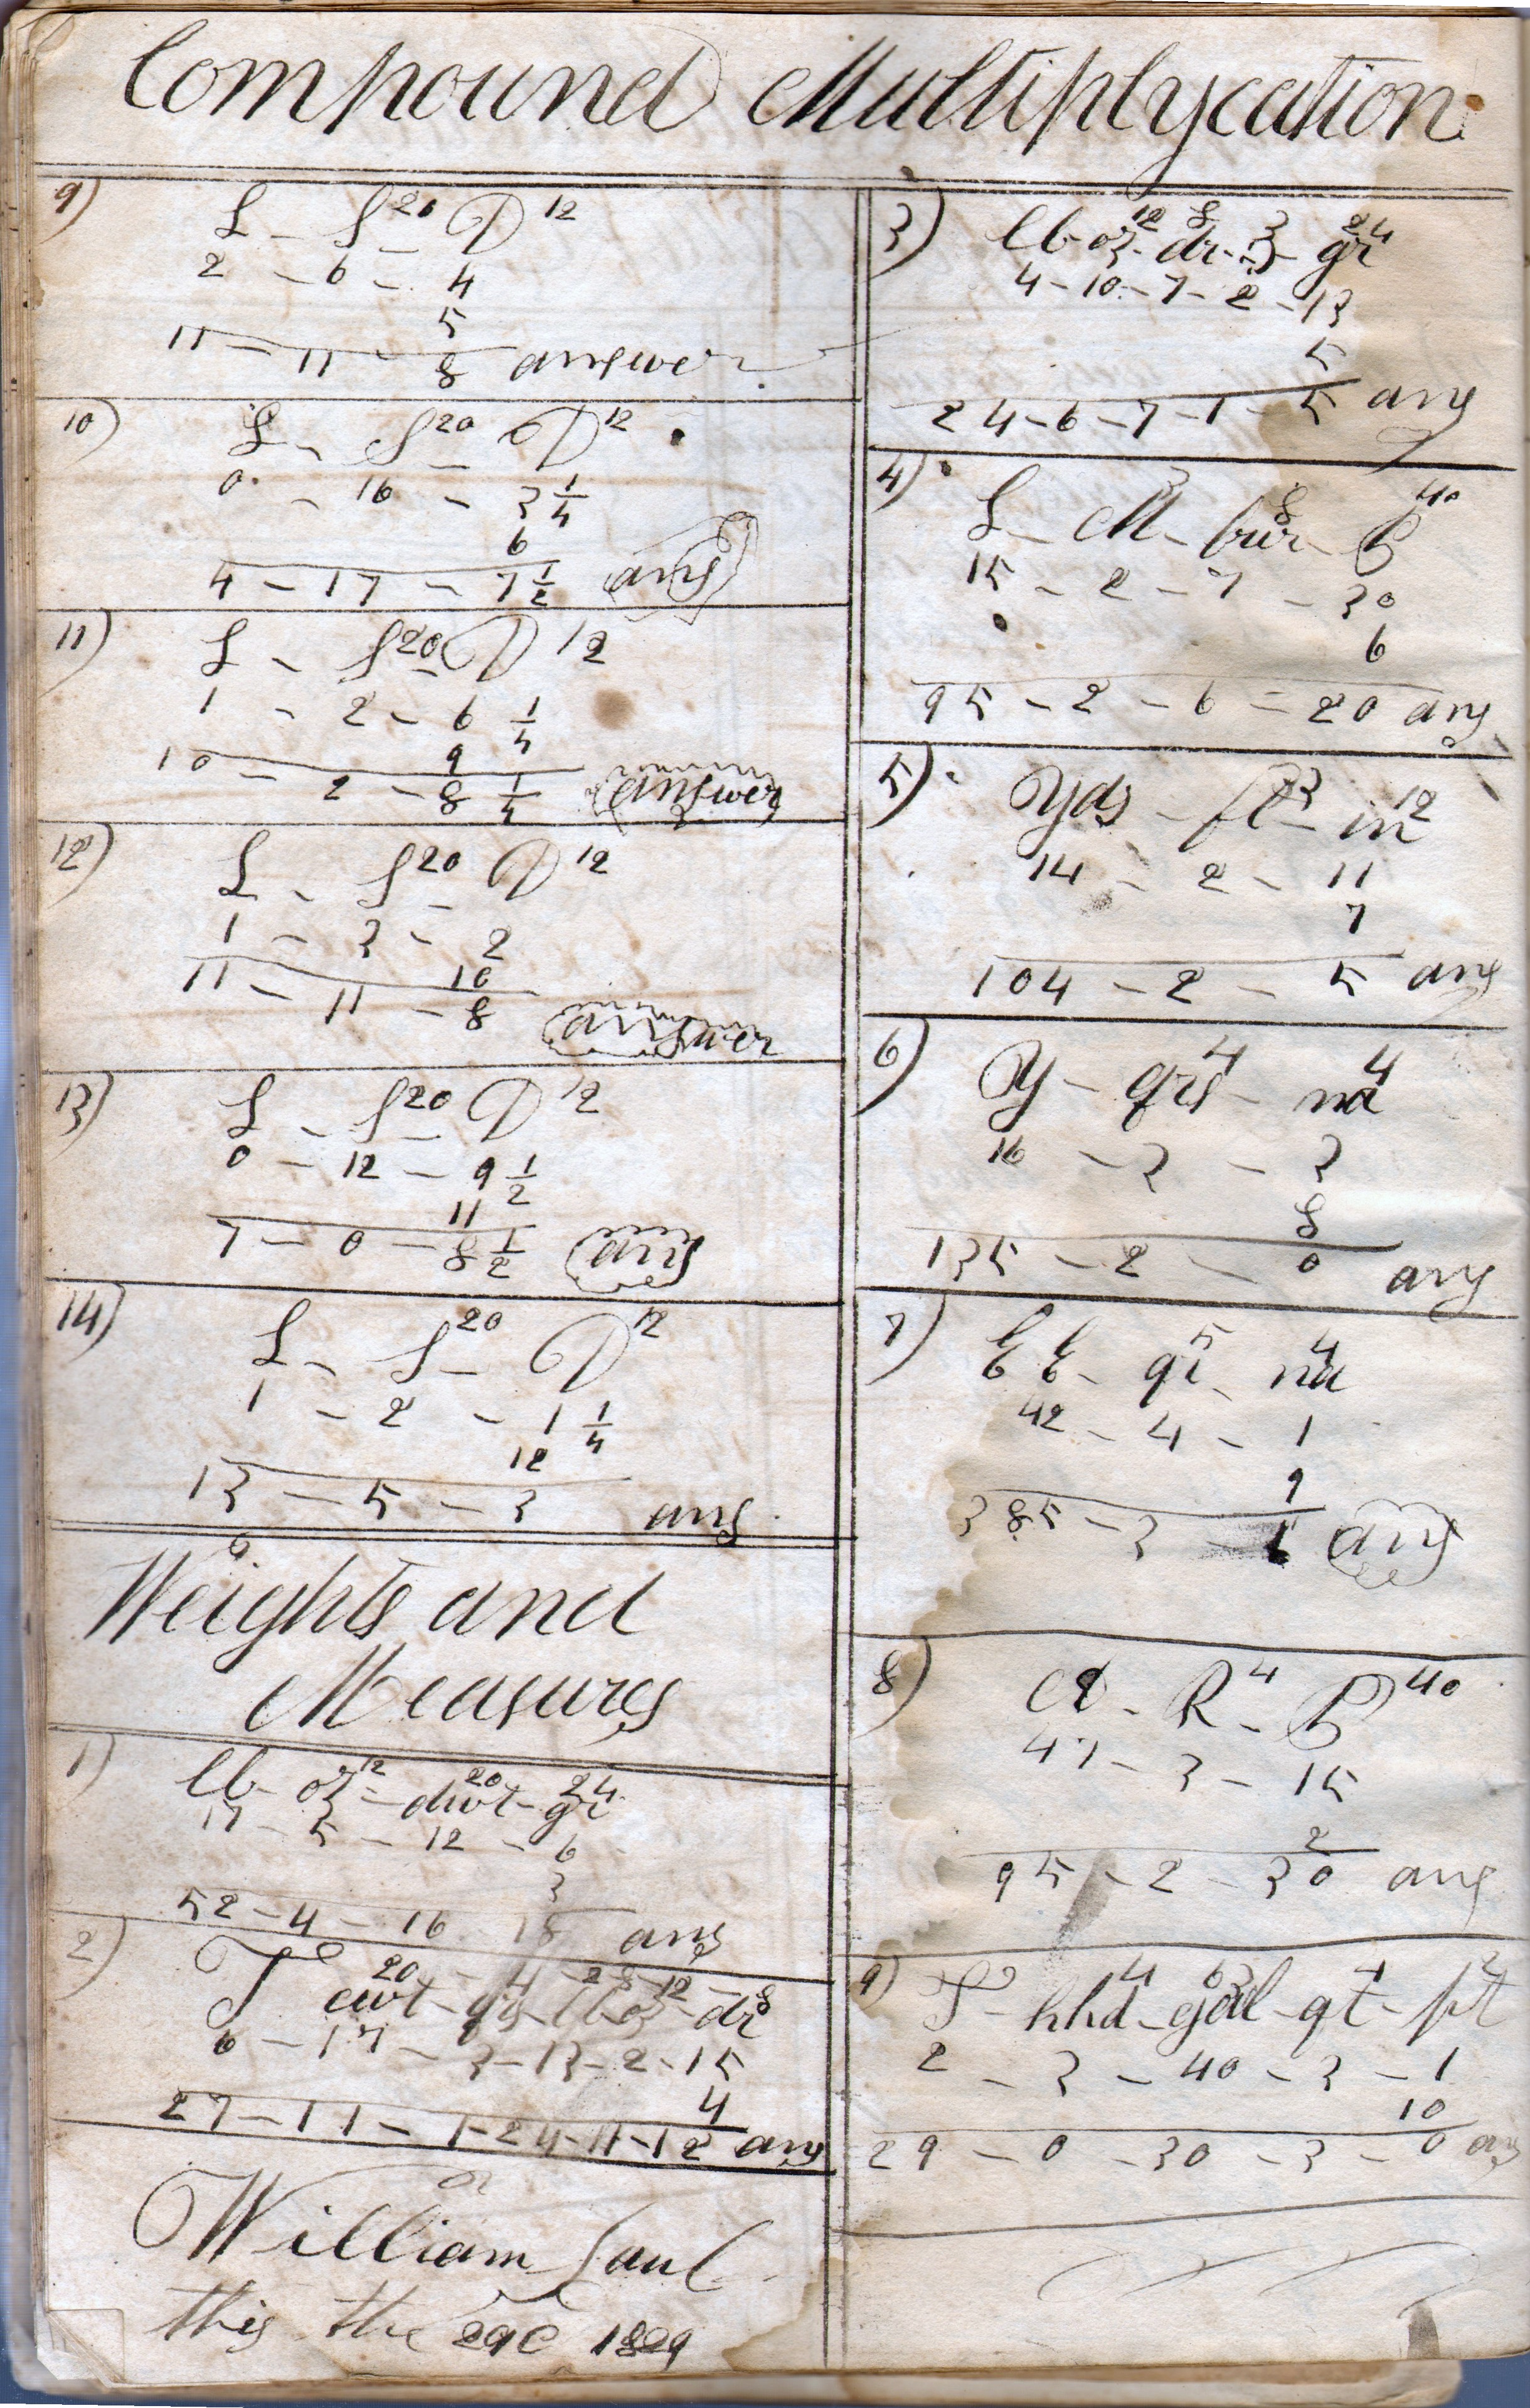 Compound Multiplycation
9)
L - S 20 - D 12
2 - 6 - 4
5
11 - 11 - 8 answer
10)
L - S 20 - D 12
0 - 16 - 3 1/4
6
4 - 17 - 7 1/2 ans
11)
L - S 20 - D 12
1 - 2 - 6 1/4
9
10 - 2 - 8 1/4 answer
12)
L - S 20 - D 12
1 - 3 - 2
10
11 - 11 - 8 answer
13)
L - S 20 - D 12
0 - 12 - 9 1/2
11
7 - 0 - 8 1/2 ans
14)
L - S 20 - D 12
1 - 2 - 1 1/4
12
13 - 5 - 3 ans
Weights and
Measures
1)
lb - oz 12 - dwt 20 - gr 24
17 - 5 - 12 - 6
3
52 - 4 - 16 - 18 ans
2)
T - cwt 20 - qrs 4 - lb 28 - oz 12 - dr 8
6 - 17 - 3 - 13 - 2 - 15
4
27 - 11 - 1 - 24 - 11 - 12 ans
William
this the 29 1829
3)
lb - oz 12 - dr 8 - ℈ 3 - gr 24
4 - 10 - 7 - 2 - 13
5
24 - 6 - 7 - 1 - 5 ans
4)
L - M 3 - fur 8 - P 40
15 - 2 - 7 - 30
6
95 - 2 - 6 - 20 ans
5)
Yds - ft 3 - in 12
14 - 2 - 11
7
104 - 2 - 5 ans
6)
Y - qrs 4 - na 4
16 - 3 - 3
8
135 - 2 - 0 ans
7)
E E - qr 5 - na 4
42 - 4 - 1
9
385 - 3 - 1 ans
8)
A - R 4 - P 40
47 - 3 - 15
2
95 - 2 - 30 ans
9)
T - hhd 4 - gal 63 - qt 4 - pt 2
2 - 3 - 40 - 3 - 1
10
29 - 0 - 30 - 3 - 0 ans